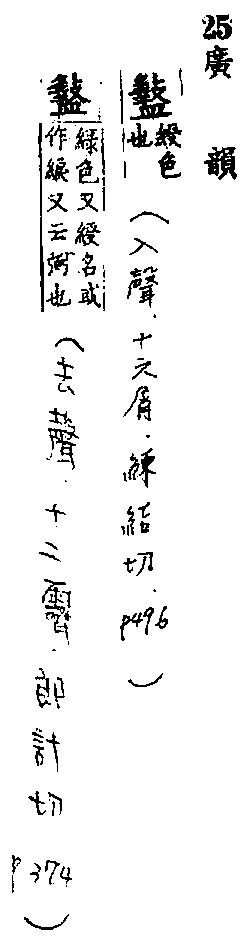 25廣韻
盭綬色也(入聲.十六屑.練結切.p496)
盭綠色又綬名或作綟又云弼也(去聲.十二霽.郎計切p374)